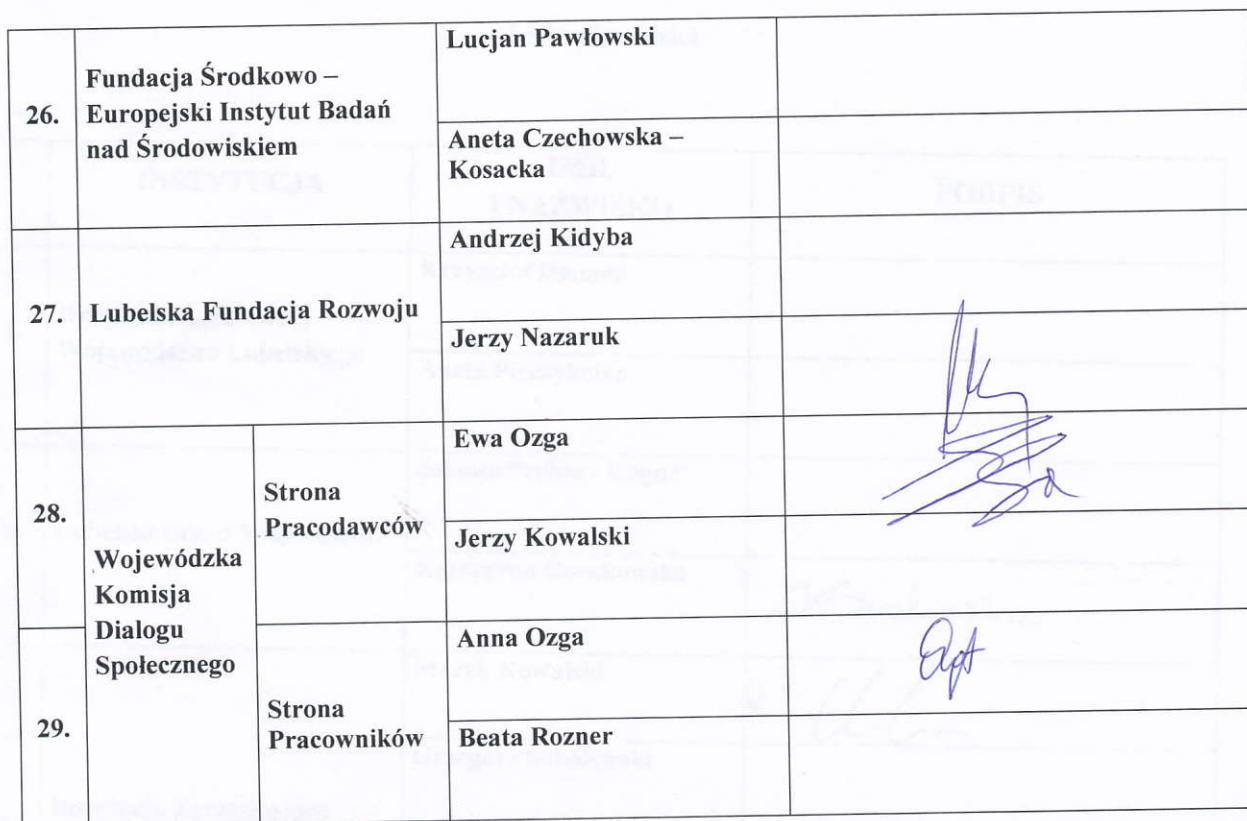 26.
Fundacja Środkowo –
Europejski Instytut Badań
nad Środowiskiem
Lucjan Pawłowski
Aneta Czechowska –
Kosacka
27.
Lubelska Fundacja Rozwoju
Andrzej Kidyba
Jerzy Nazaruk
28.
Wojewódzka
Komisja
Dialogu
Społecznego
Strona
Pracodawców
Ewa Ozga
Jerzy Kowalski
29.
Strona
Pracowników
Anna Ozga
Beata Rozner